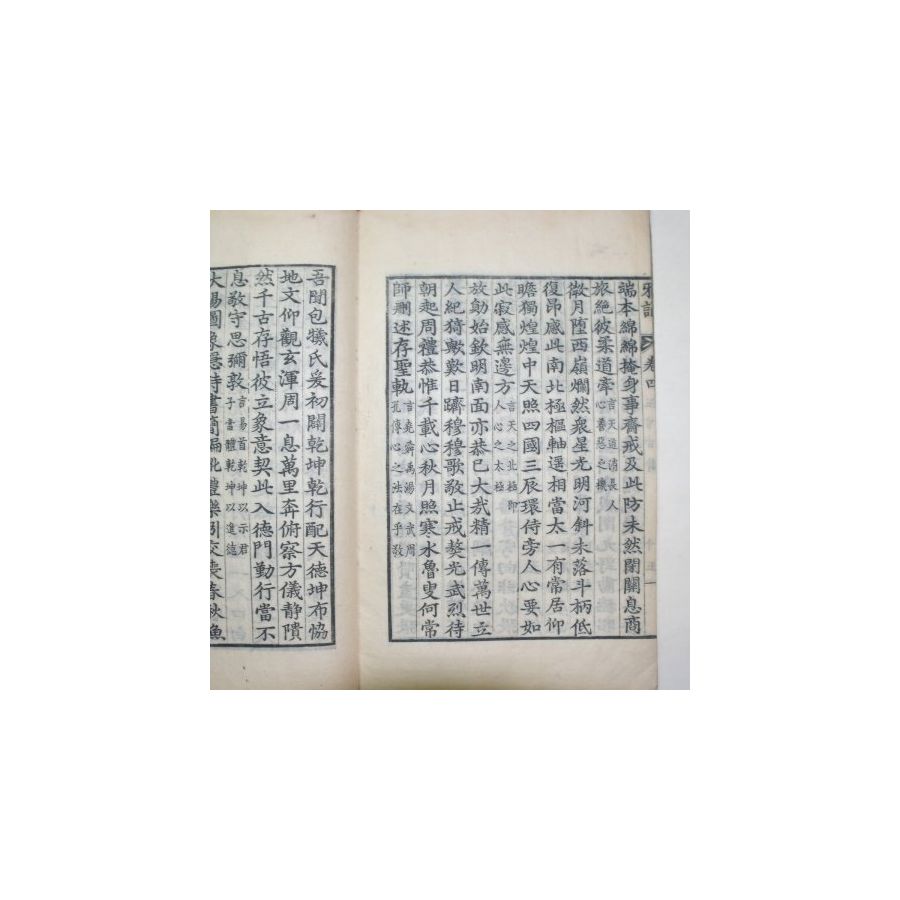 雅誦 卷四
端本綿綿掩身事齋戒及此防未然閉關息商
旅絕彼柔道牽言天道消長人心善惡之機
微月墮西嶺爛然衆星光明河斜未落斗柄低
復昂感此南北極樞軸遥相當太一有常居仰
瞻獨煌煌中天照四國三辰環侍旁人心要如
此寂感無邊方言天之北極即人心之太極
放勛始欽明南面亦恭己大哉精一傳萬世立
人紀猗歟歎日躋穆穆歌敬止戒獒光武烈待
朝起周禮恭惟千載心秋月照寒水魯叟何常
師刪述存聖軌言堯舜禹湯文武周孔傳心之法在乎敬
吾聞包犧氏爰初闢乾坤乾行配天德坤布協
地文仰觀玄渾周一息萬里奔俯察方儀静隤
然千古存悟彼立象意契此入德門勤行當不
息敬守思彌敦言易首乾坤以示君子當體乾坤以進德
大易圖象隱詩書簡編訛禮樂矧交喪春秋魚